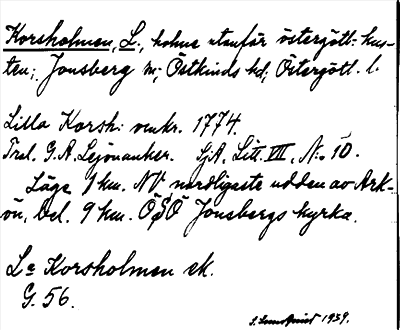 Korsholmen, L., holme utanför östergötl. kus-
ten; Jonsberg sn; Östkinds hd; Östergötl. l.
Lilla Korsh: omkr. 1774.
Trol. G.A. Lejonanker. SjA, Litt. VII, N:o 10.
Läge 1 km. NV nordligaste udden av Ark-
ön, bel. 9 km. OSO Jonsbergs kyrka.
La Korsholmen ek.
G. 56.
S. Lundqvist 1939.